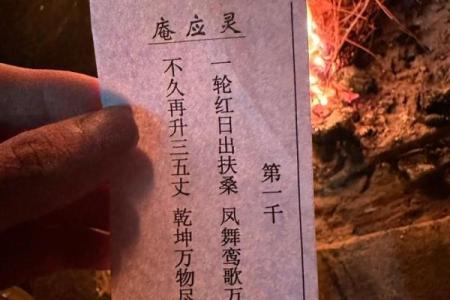 灵应庵
第一千
一轮红日出扶桑 凤舞鸾歌万
不久再升三五丈 乾坤万物尽